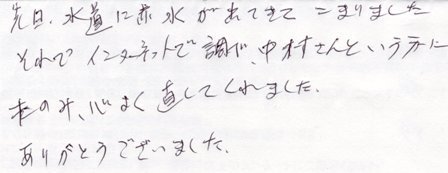 先日、水道に赤水が出てきて こまりました
それで インターネットで調べ、中村さんという方に
たのみ、心よく 直してくれました。
ありがとうございました。